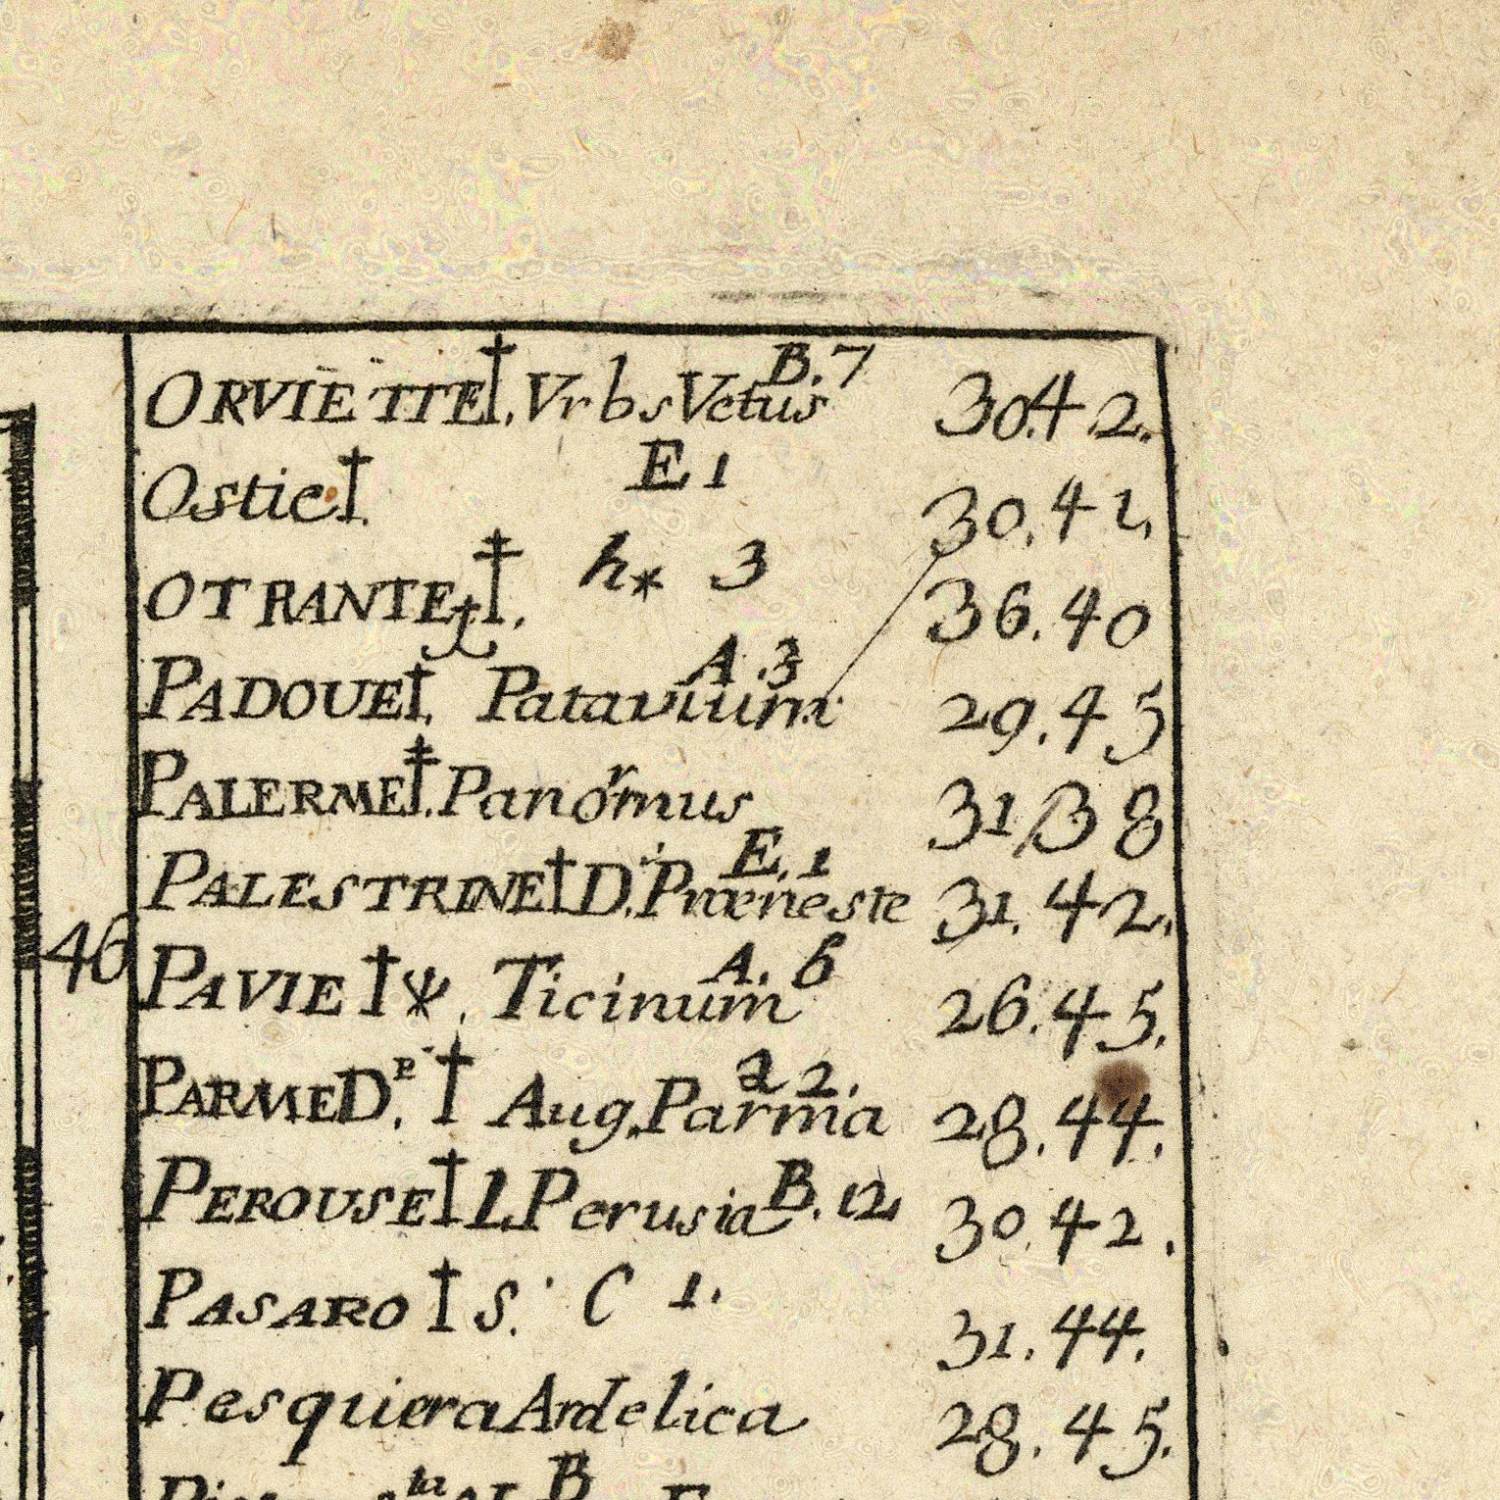 ORVIETTE†. Vrbs Vetus B.7 30.42.
Ostie†. E 1 30.41.
OTRANTE‡. h* 3 36.40
PADOUE†. Patavium A.3 29.45
PALERME‡. Panormus 31.38
PALESTRINE† D. Præneste E.1 31.42.
46
PAVIE†. Ticinum A.6 26.45.
PARME D.P † Aug. Parma a 2. 28.44.
PEROUSE† L Perusia B.12 30.42.
PASARO† S. C 1. 31.44.
Pesquiera Ardelica 28.45.